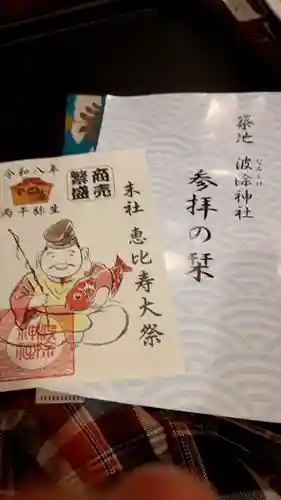 築地 波除神社
なみよけ
参拝の栞
令和八年
丙午弥生
商売
繁盛
末社 恵比寿大祭